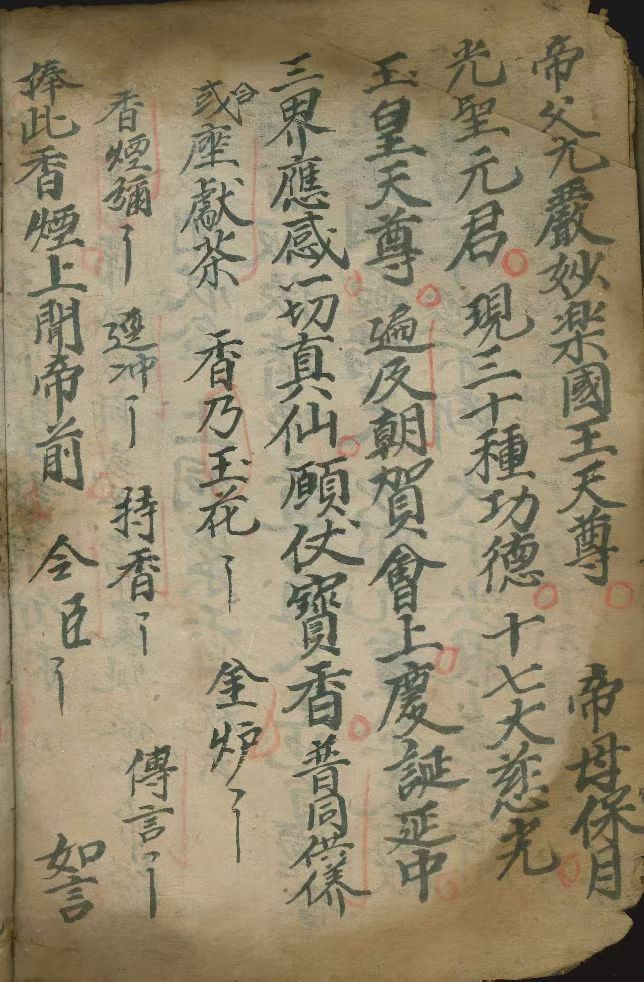 帝父光嚴妙楽國王天尊　帝母保月
光聖元君　現三十種功德　十七大慈光
玉皇天尊　遍及朝賀會上慶誕延中
三界應感一切真仙願仗寶香普同供養
或合座獻茶　香乃玉花　金炉
香煙彌　遶冲　持香　傳言
捧此香煙上聞帝前　令臣　如言